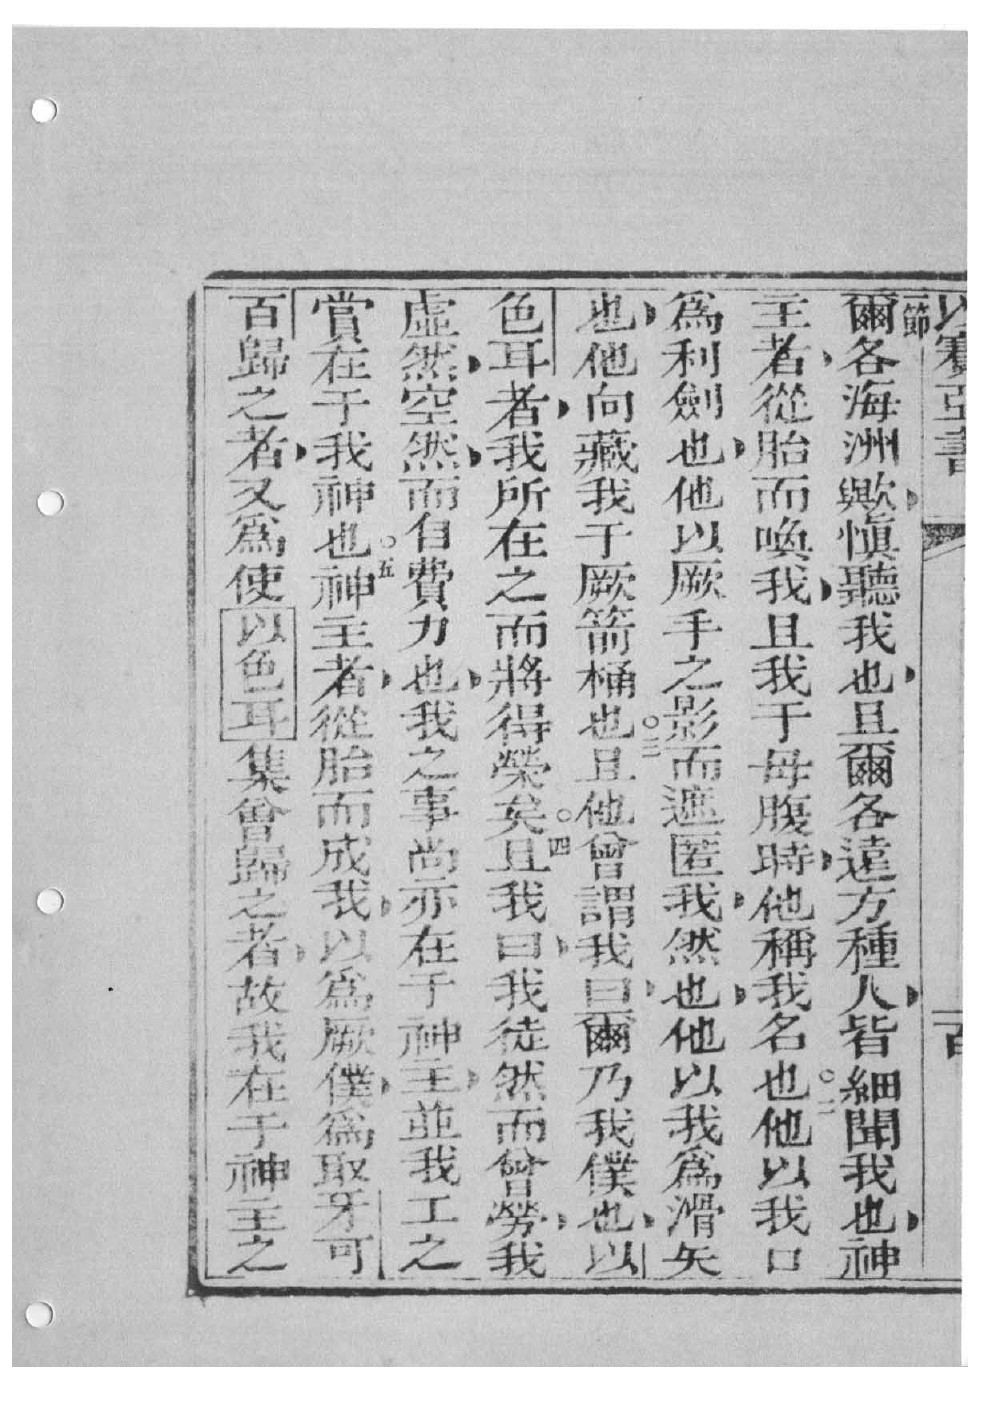 以賽亞書
百
一節
爾各海洲歟愼聽我也且爾各遠方種人皆細聞我也神
主者從胎而喚我且我于母腹時他稱我名也○二他以我口
爲利劍也他以厥手之影而遮匿我然也他以我爲滑矢
也他向藏我于厥箭桶也○三且他曾謂我曰爾乃我僕也以
色耳者我所在之而將得榮矣○四且我曰我徒然而曾勞我
虛然空然而自費力也我之事尚亦在于神主並我工之
賞在于我神也○五神主者從胎而成我以爲厥僕爲取牙可
百歸之者又爲使以色耳集曾歸之者故我在于神主之